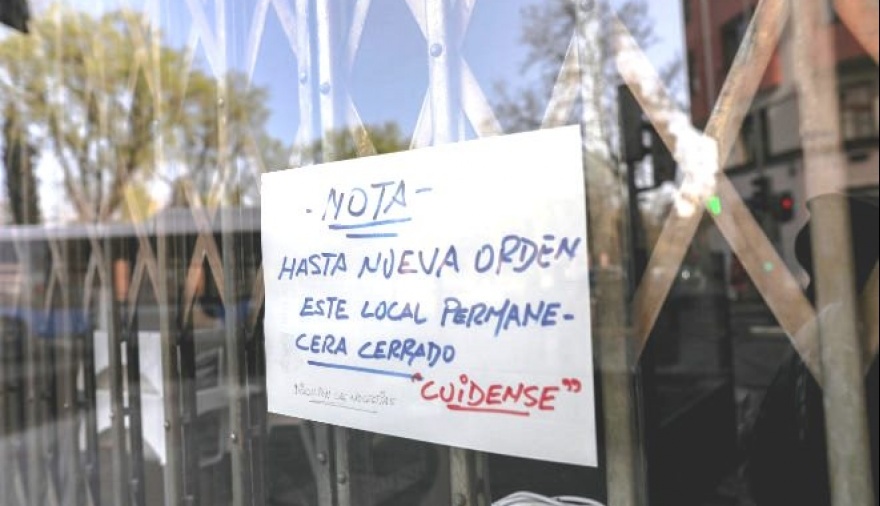 - NOTA -
HASTA NUEVA ORDEN
ESTE LOCAL PERMANE-
CERA CERRADO
"CUIDENSE"